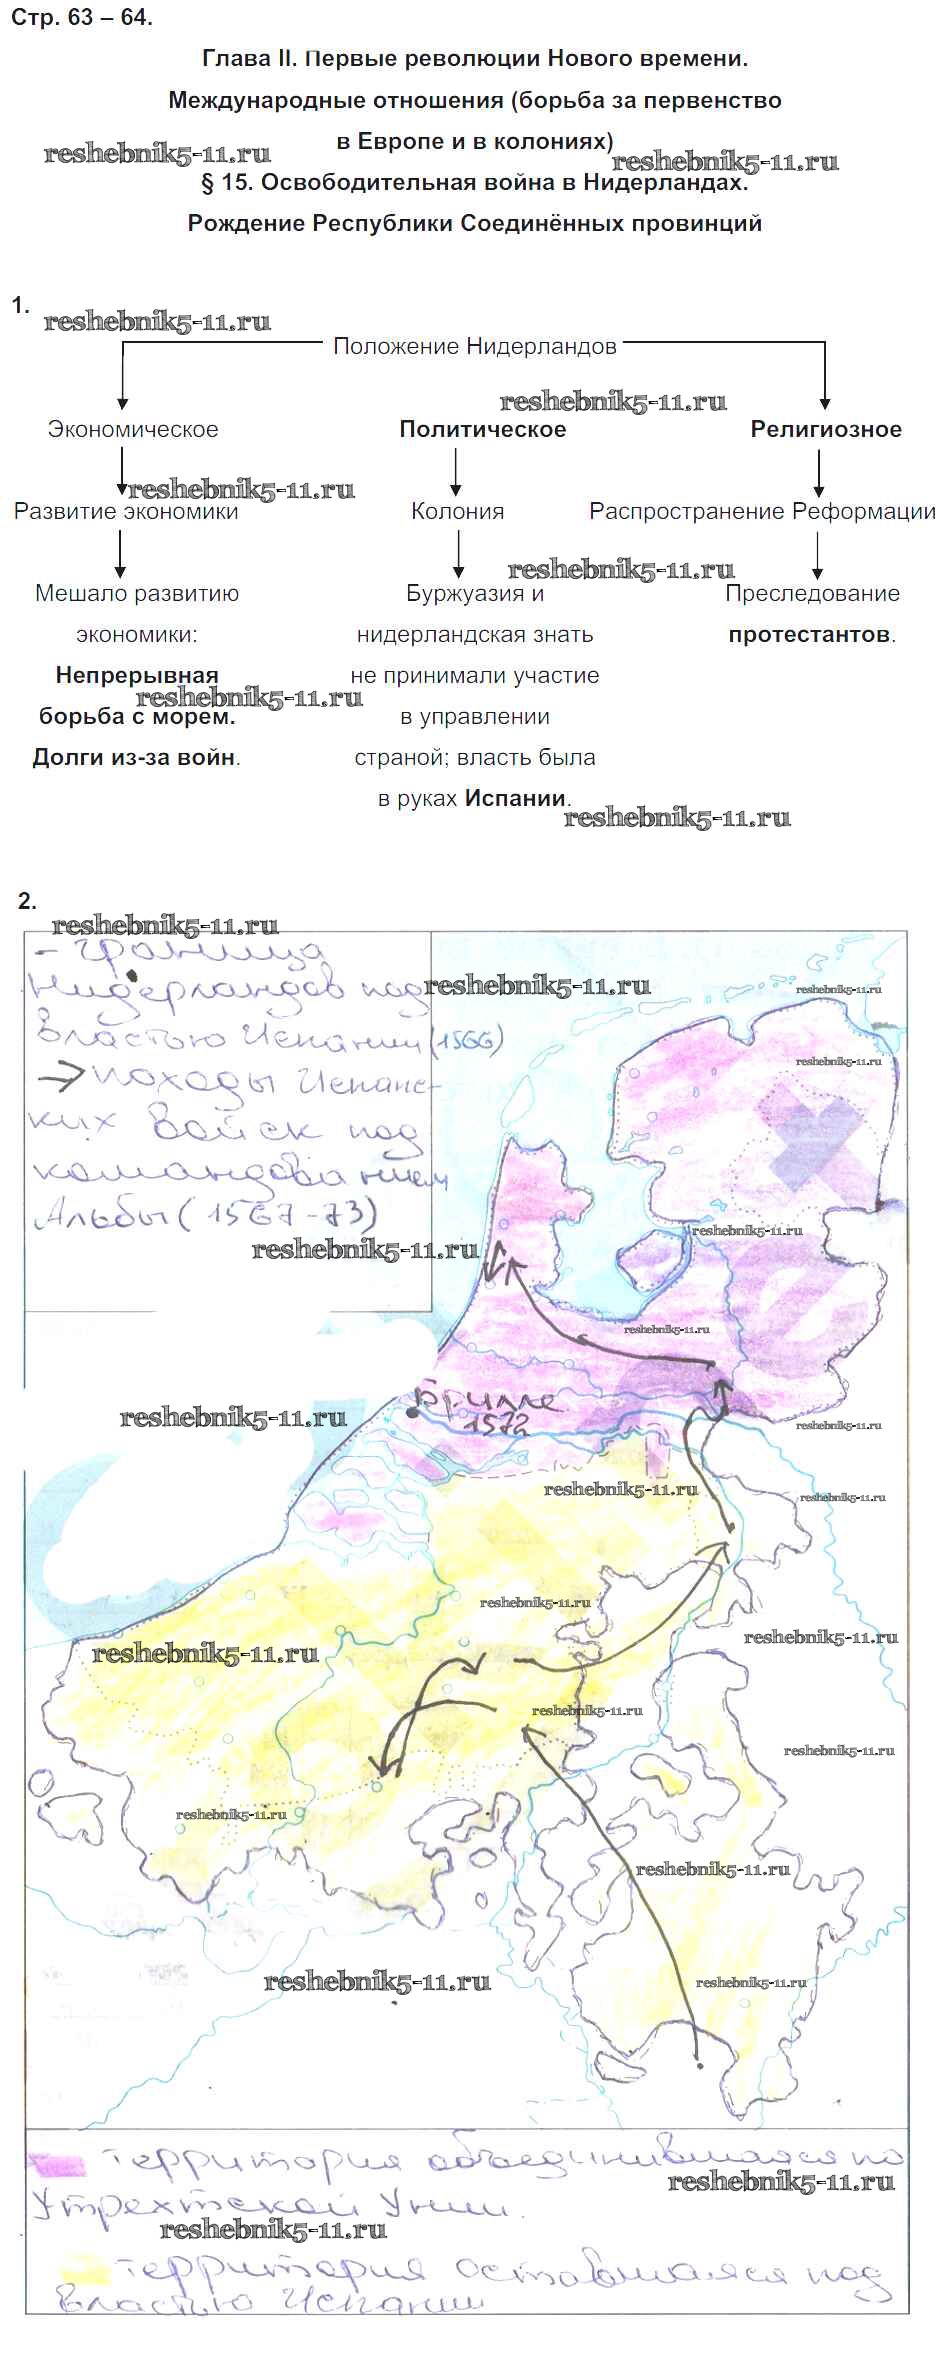 Стр. 63 – 64.
Глава II. Первые революции Нового времени.
Международные отношения (борьба за первенство
в Европе и в колониях)
reshebnik5-11.ru
reshebnik5-11.ru
§ 15. Освободительная война в Нидерландах.
Рождение Республики Соединённых провинций
1.
reshebnik5-11.ru
Положение Нидерландов
reshebnik5-11.ru
Экономическое Политическое Религиозное
reshebnik5-11.ru
Развитие экономики Колония Распространение Реформации
reshebnik5-11.ru
Мешало развитию Буржуазия и Преследование
экономики: нидерландская знать протестантов.
Непрерывная не принимали участие
reshebnik5-11.ru
борьба с морем. в управлении
Долги из-за войн. страной; власть была
в руках Испании.
reshebnik5-11.ru
2.
reshebnik5-11.ru
- граница
Нидерландов под
reshebnik5-11.ru
reshebnik5-11.ru
властью Испании (1566)
reshebnik5-11.ru
→ походы Испанс-
ких войск под
командованием
Альбы (1567-73)
reshebnik5-11.ru
reshebnik5-11.ru
reshebnik5-11.ru
Брилле
1572
reshebnik5-11.ru
reshebnik5-11.ru
reshebnik5-11.ru
reshebnik5-11.ru
reshebnik5-11.ru
reshebnik5-11.ru
reshebnik5-11.ru
reshebnik5-11.ru
reshebnik5-11.ru
reshebnik5-11.ru
reshebnik5-11.ru
reshebnik5-11.ru
reshebnik5-11.ru
территория объединившаяся по
reshebnik5-11.ru
Утрехтской Унии.
reshebnik5-11.ru
территория оставшаяся под
властью Испании